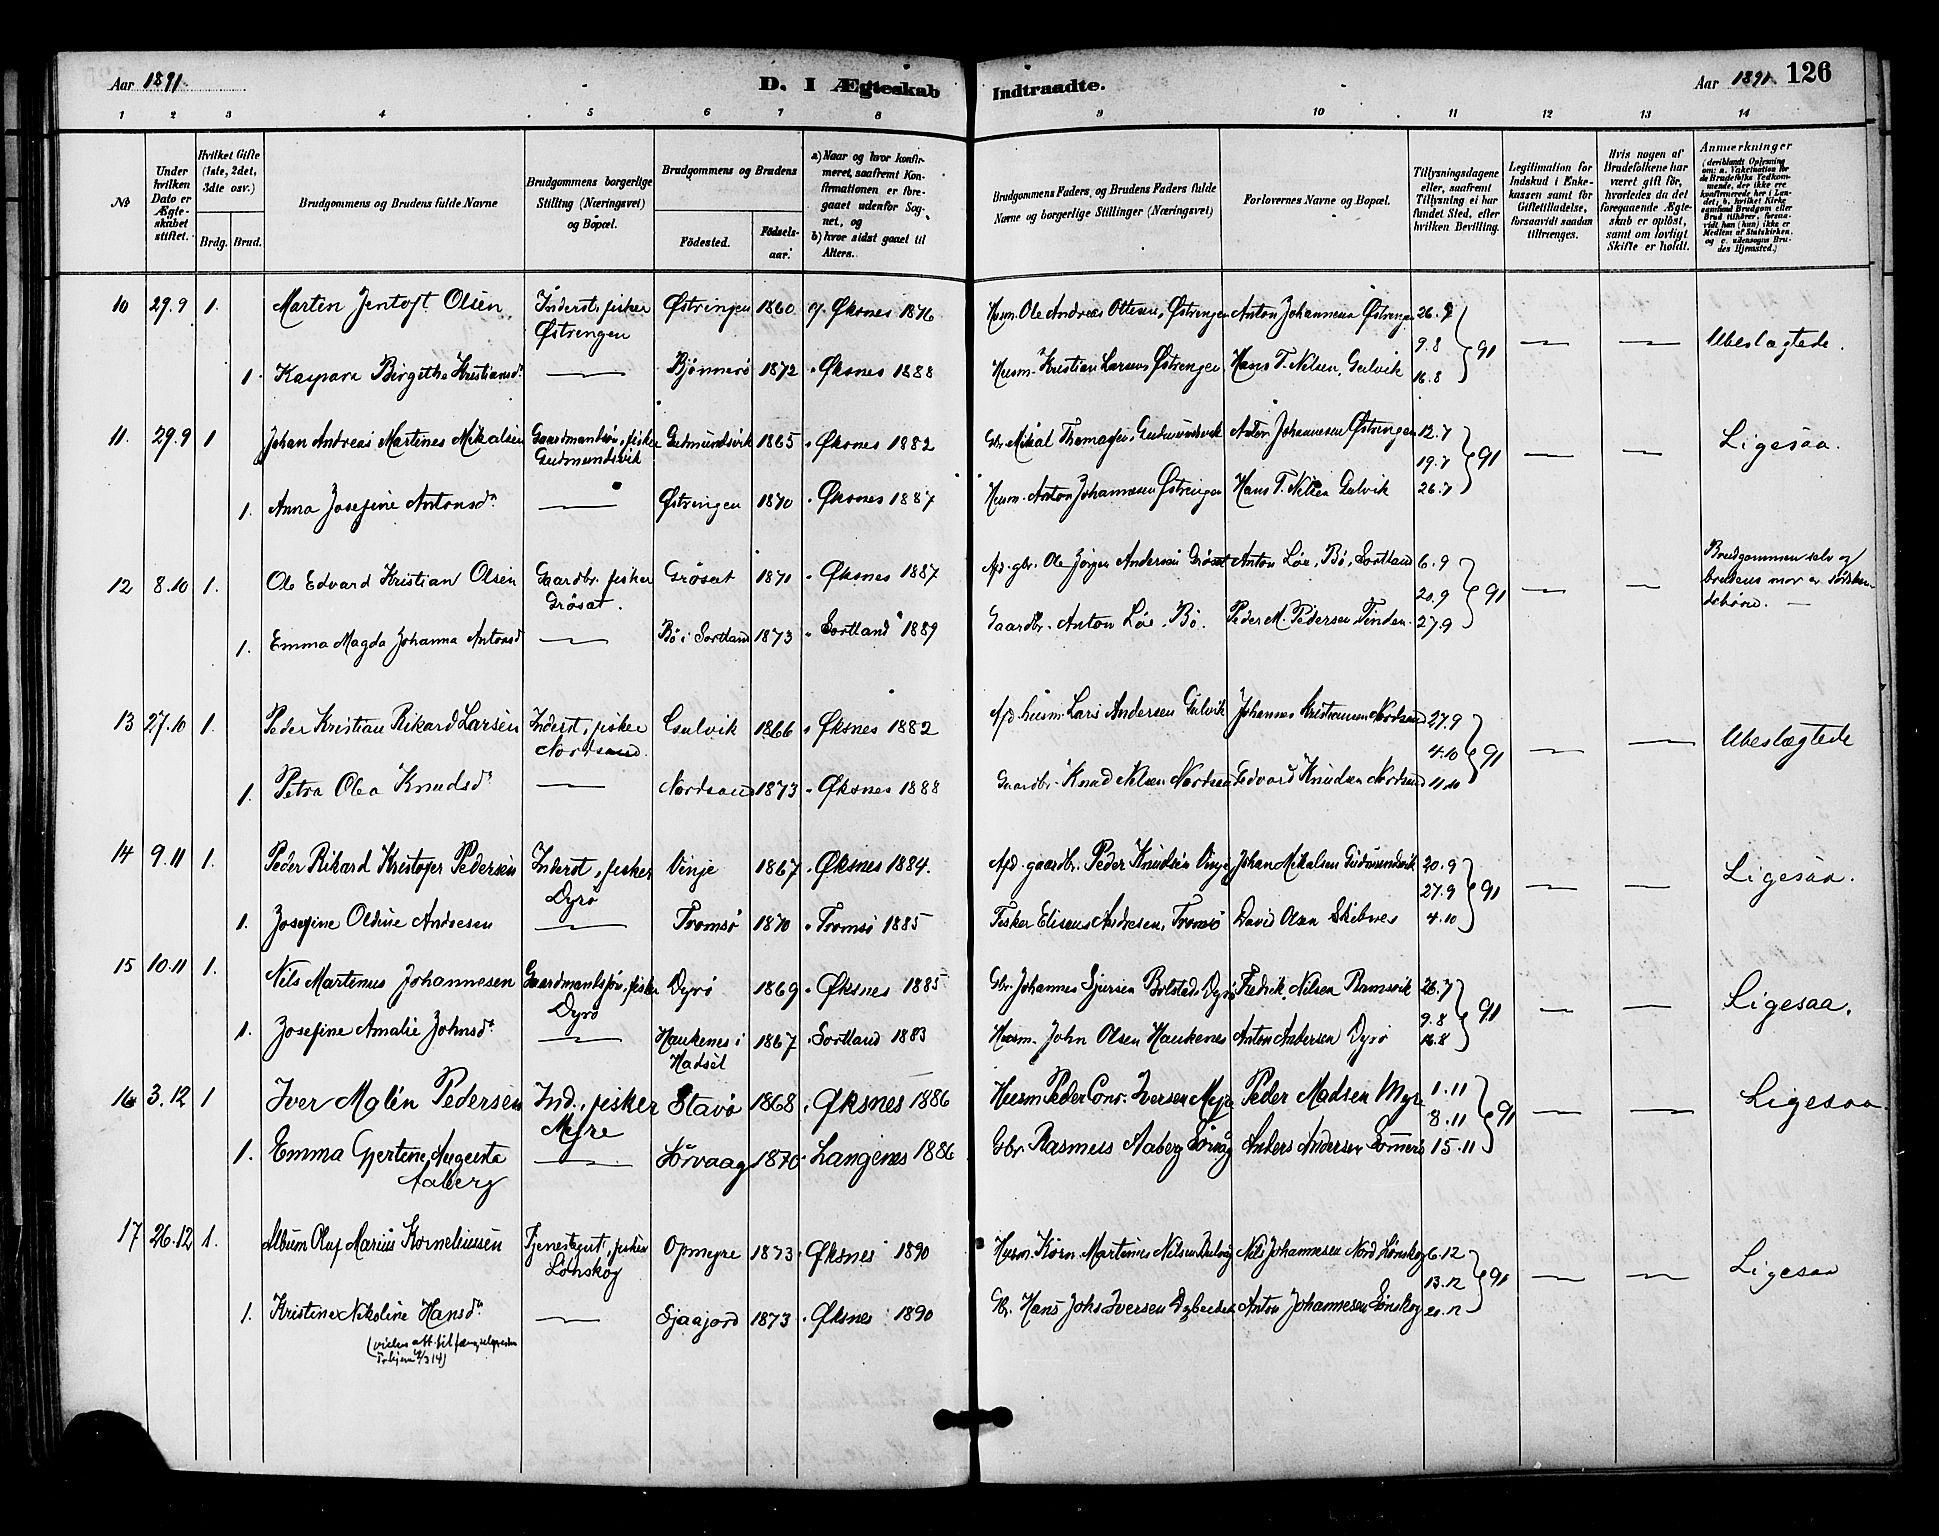 Aar 1891.
D. I Ægteskab
Indtraadte.
Aar 1891. 126
1 2 3 4 5 6 7 8 9 10 11 12 13 14
No
Under hvilken Dato er Ægteskabet stiftet.
Hvilket Gifte (1ste, 2det, 3die osv.)
Brdg. Brud.
Brudgommens og Brudens fulde Navne
Brudgommens borgerlige Stilling (Næringsvei) og Bopæl.
Brudgommens og Brudens
Fødested.
Fødselsaar.
a) Naar og hvor konfirmeret, saafremt Konfirmationen er foregaaet udenfor Sognet, og
b) hvor sidst gaaet til Alters.
Brudgommens Faders, og Brudens Faders fulde Navne og borgerlige Stillinger (Næringsvei)
Forlovernes Navne og Bopæl.
Tillysningsdagene eller, saafremt Tillysning ei har fundet Sted, efter hvilken Bevilling.
Legitimation for Indskud i Enkekassen samt for Giftetilladelse, forsaavidt saadan tiltrænges.
Hvis nogen af Brudefolkene har været gift før, hvorledes da det foregaaende Ægteskab er opløst, samt om lovligt Skifte er holdt.
Anmærkninger
10 29.9 1. Marten Jentoft Olsen Inderst, fisker Østringen 1860 Øksnes 1876 Husm. Ole Andreas Ottesen, Østringen Anton Johannesen Østringen 26.7
Østringen 9.8 91 Ubeslægtede.
1. Kaspara Birgitha Kristiansd. Bjønnerø 1872 Øksnes 1888 Husm. Kristian Larsen Østringen Hans T. Nilsen, Gulvik 16.8
11. 29.9 1 Johan Andreas Martines Mikalsen Gaardmandsøn, fisker Gudmundsvik 1865 Øksnes 1882 Gbr. Mikal Thomassen Gudmundsvik Anton Johannesen Østringen 12.7
Gudmundsvik 19.7 91 Ligesaa.
1. Anna Josefine Antonsd. Østringen 1870 Øksnes 1887 Husm. Anton Johannesen Østringen Hans T. Nilsen Gulvik 26.7
12 8.10 1. Ole Edvard Kristian Olsen Gaardbr. fisker Grøsæt 1871 Øksnes 1887 Afd. gbr. Ole Jørgen Andersen Anton Løe, Bø, Sortland 6.9 Brudgommen selv og
Grøsæt. 20.9 91 brudens mor er søskendebørn.
1. Emma Magda Johanna Antonsd Bø i Sortland 1873 Sortland 1889 Gaardbr. Anton Løe, Bø. Peder M. Pedersen Finden 27.9
13 27.10 1. Peder Kristian Rikard Larsen Inderst, fisker Gulvik 1866 Øksnes 1882 Afd. husm. Lars Andersen Gulvik Johannes Kristiansen Nordsand 27.9
Nordsand. 4.10 91 Ubeslægtede
1. Petra Olea Knudsd. Nordsand 1873 Øksnes 1888 Gaardbr. Knud Nilsen Nordsand Edvard Knudsen Nordsand 11.10
14 9.11 1. Peder Rikard Kristofer Pedersen Inderst, fisker Vinje 1867 Øksnes 1884. Afd. gaardbr. Peder Knudsen Vinje Johan Mikalsen Gudmundsvik 20.9
Dyrø 27.9 91 Ligesaa.
1. Josefine Oldine Andresen Tromsø 1870 Tromsø 1885 Fisker Eliseus Andresen, Tromsø David Olsen Skibnes 4.10
15 10.11 1. Nils Martinus Johannesen Gaardmandsøn, fisker Dyrø 1869 Øksnes 1885 Gbr. Johannes Sjursen Bolstad, Dyrø Fredrik Nilsen Ramsvik 26.7
Dyrø 9.8 91 Ligesaa.
1. Josefine Amalie Johnsd. Haukenes i Hadsel 1867 Sortland 1883 Husm. John Olsen Haukenes Anton Andersen Dyrø 16.8
16 3.12 1 Iver Malén Pedersen Ind., fisker Stavø 1868 Øksnes 1886 Husm. Peder Conr. Iversen Myre Peder Madsen Myre 1.11
Myre 8.11 91 Ligesaa.
1. Emma Gjertine Augusta Aaberg Sørvaag 1870 Langenes 1886 Gbr. Rasmus Aaberg Sørvåg Anders Andersen Sommerø 15.11
17 26.12 1. Album Oluf Marius Korneliussen Tjenestegut, fisker Opmyre 1873 Øksnes 1890 Husm. Korn. Martines Nilsen Nils Johannesen Nord Lønskog 6.12
Lønskog 13.12 91 Ligesaa
1. Kristine Nikoline Hansd. Sjaajord 1873 Øksnes 1890 Gbr. Hans Johs Iversen Anton Johannesen Lønskog 20.12